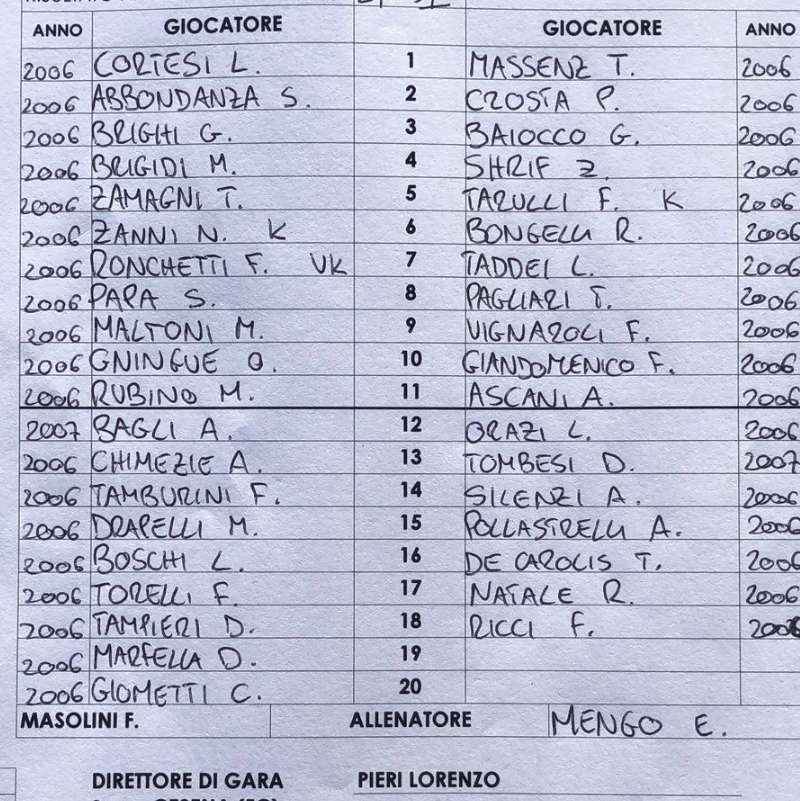 ANNO GIOCATORE GIOCATORE ANNO
2006 CORTESI L. 1 MASSENZ T. 2006
2006 ABBONDANZA S. 2 CROSTA P. 2006
2006 BRIGHI G. 3 BAIOCCO G. 2006
2006 BRIGIDI M. 4 SHRIF Z. 2006
2006 ZAMAGNI T. 5 TARULLI F. K 2006
2006 ZANNI N. K 6 BONGELLI R. 2006
2006 RONCHETTI F. VK 7 TADDEI L. 2006
2006 PAPA S. 8 PAGLIARI T. 2006
2006 MALTONI M. 9 VIGNAROLI F. 2006
2006 GNINGUE O. 10 GIANDOMENICO F. 2006
2006 RUBINO M. 11 ASCANI A. 2006
2007 BAGLI A. 12 ORAZI L. 2006
2006 CHIMEZIE A. 13 TOMBESI D. 2007
2006 TAMBURINI F. 14 SILENZI A. 2006
2006 DRAPELLI M. 15 POLLASTRELLI A. 2006
2006 BOSCHI L. 16 DE CAROLIS T. 2006
2006 TORELLI F. 17 NATALE R. 2006
2006 TAMPIERI D. 18 RICCI F. 2006
2006 MARFELLA D. 19
2006 GIOMETTI C. 20
MASOLINI F. ALLENATORE MENGO E.
DIRETTORE DI GARA PIERI LORENZO